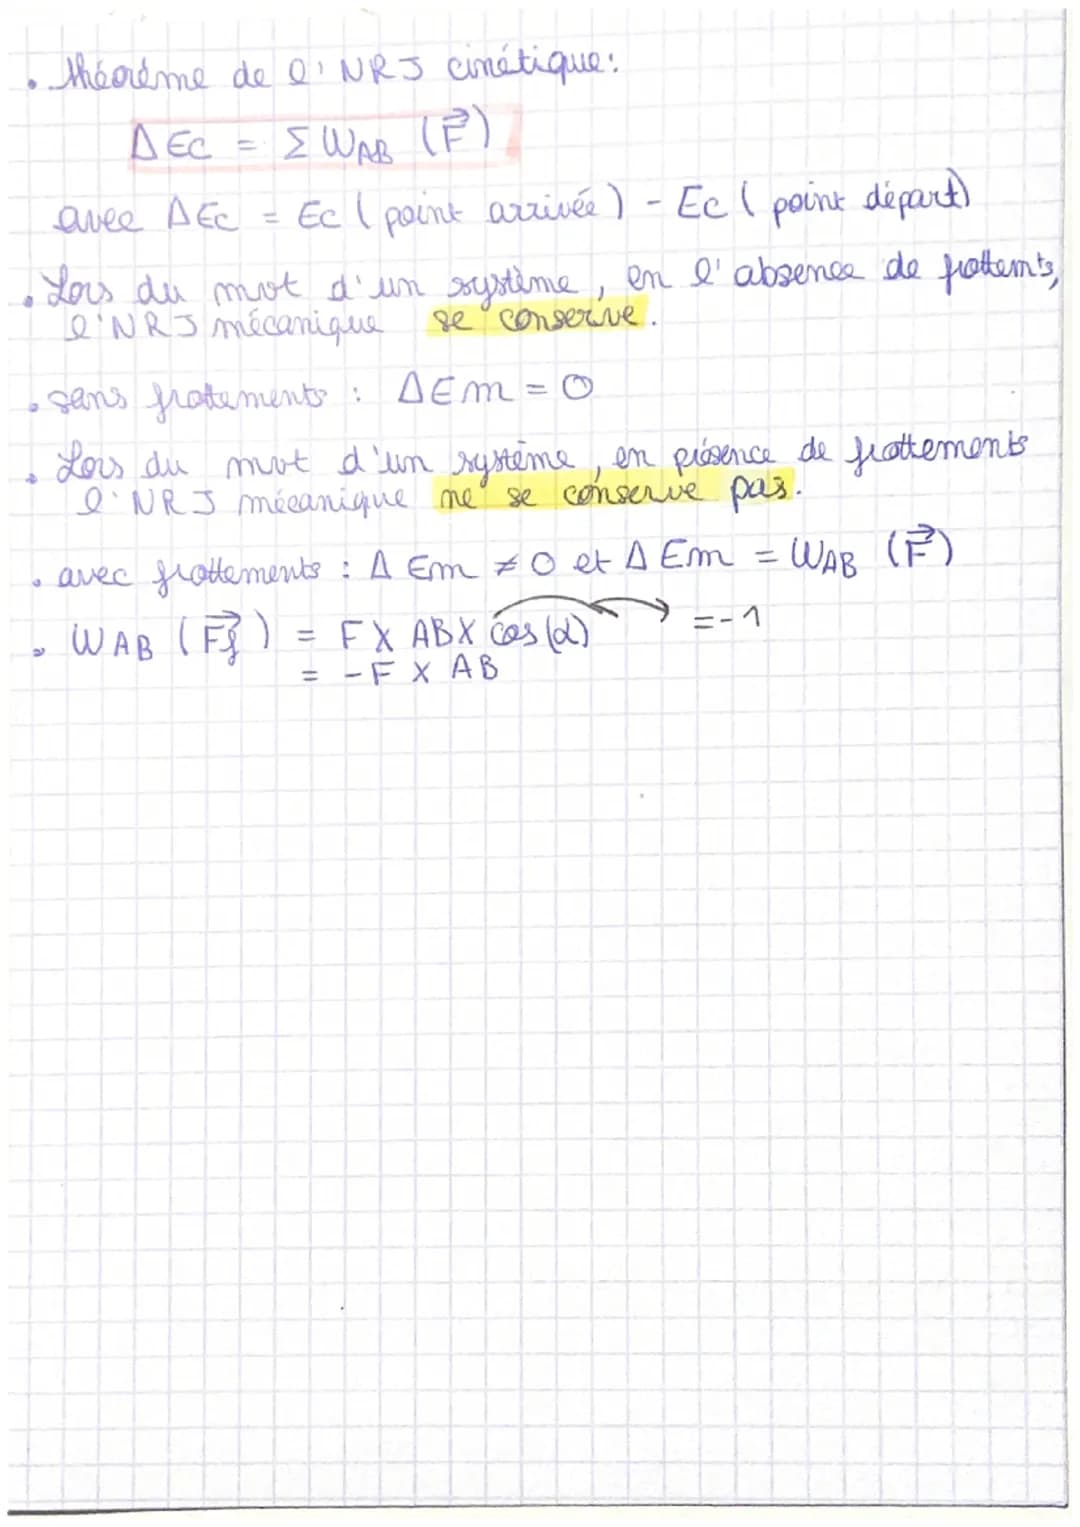 • théorème de l'NRJ cinétique:
ΔEc = Σ WAB (F⃗)
avec ΔEc = Ec (point arrivée) - Ec (point départ)
• Lors du mvt d'un système, en l'absence de frottemts,
l'NRJ mécanique se conserve.
• sans frottements : ΔEm = 0
• Lors du mvt d'un système, en présence de frottements
l'NRJ mécanique ne se conserve pas.
• avec frottements : ΔEm ≠ 0 et ΔEm = WAB (F⃗)
• WAB (F⃗f) = F X AB X cos(α) → = -1
= -F X AB